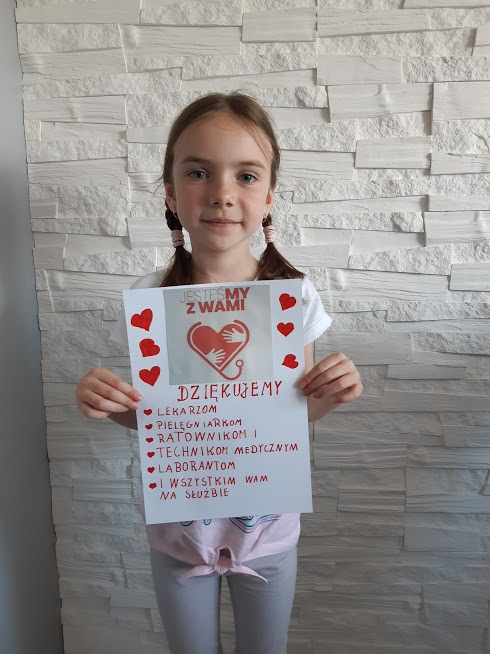 JESTEŚMY
Z WAMI
DZIĘKUJEMY
LEKARZOM
PIELĘGNIARKOM
RATOWNIKOM I
TECHNIKOM MEDYCZNYM
LABORANTOM
I WSZYSTKIM WAM
NA SŁUŻBIE